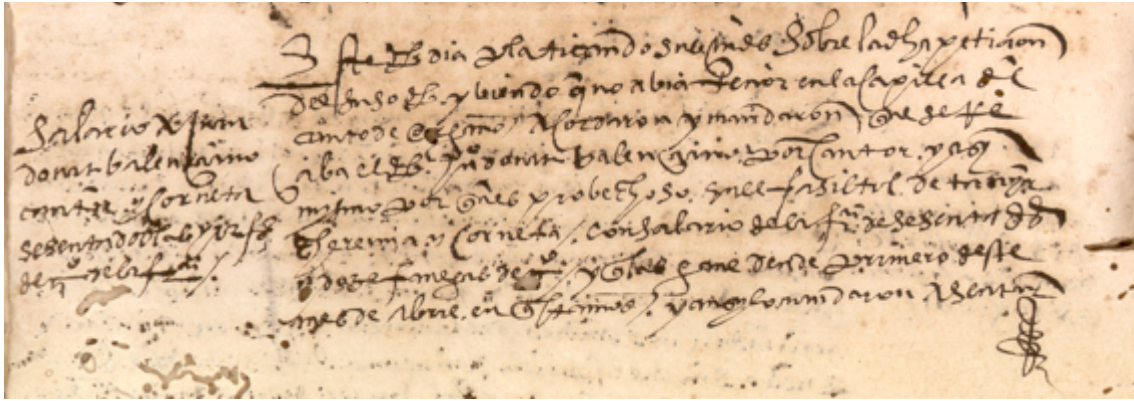 Salario a Juan
donat valenciano
cantor y corneta
sesenta ds y doze fs
de tº de la fca
Este dho dia platicando sus mds sobre la dha peticion
del suso dho y viendo q no abia tenor en la capilla del
canto de acordaron y mandaron que se rre
ciba el dho juº donat valenciano por cantor y asy
mismo por ques probechoso en el fasistol de
cheremia y corneta con salario de la fca de sesenta ds
y doze fanegas de tº y q las gane desde primero deste
mes de abril en y ansy lo mandaron asentar